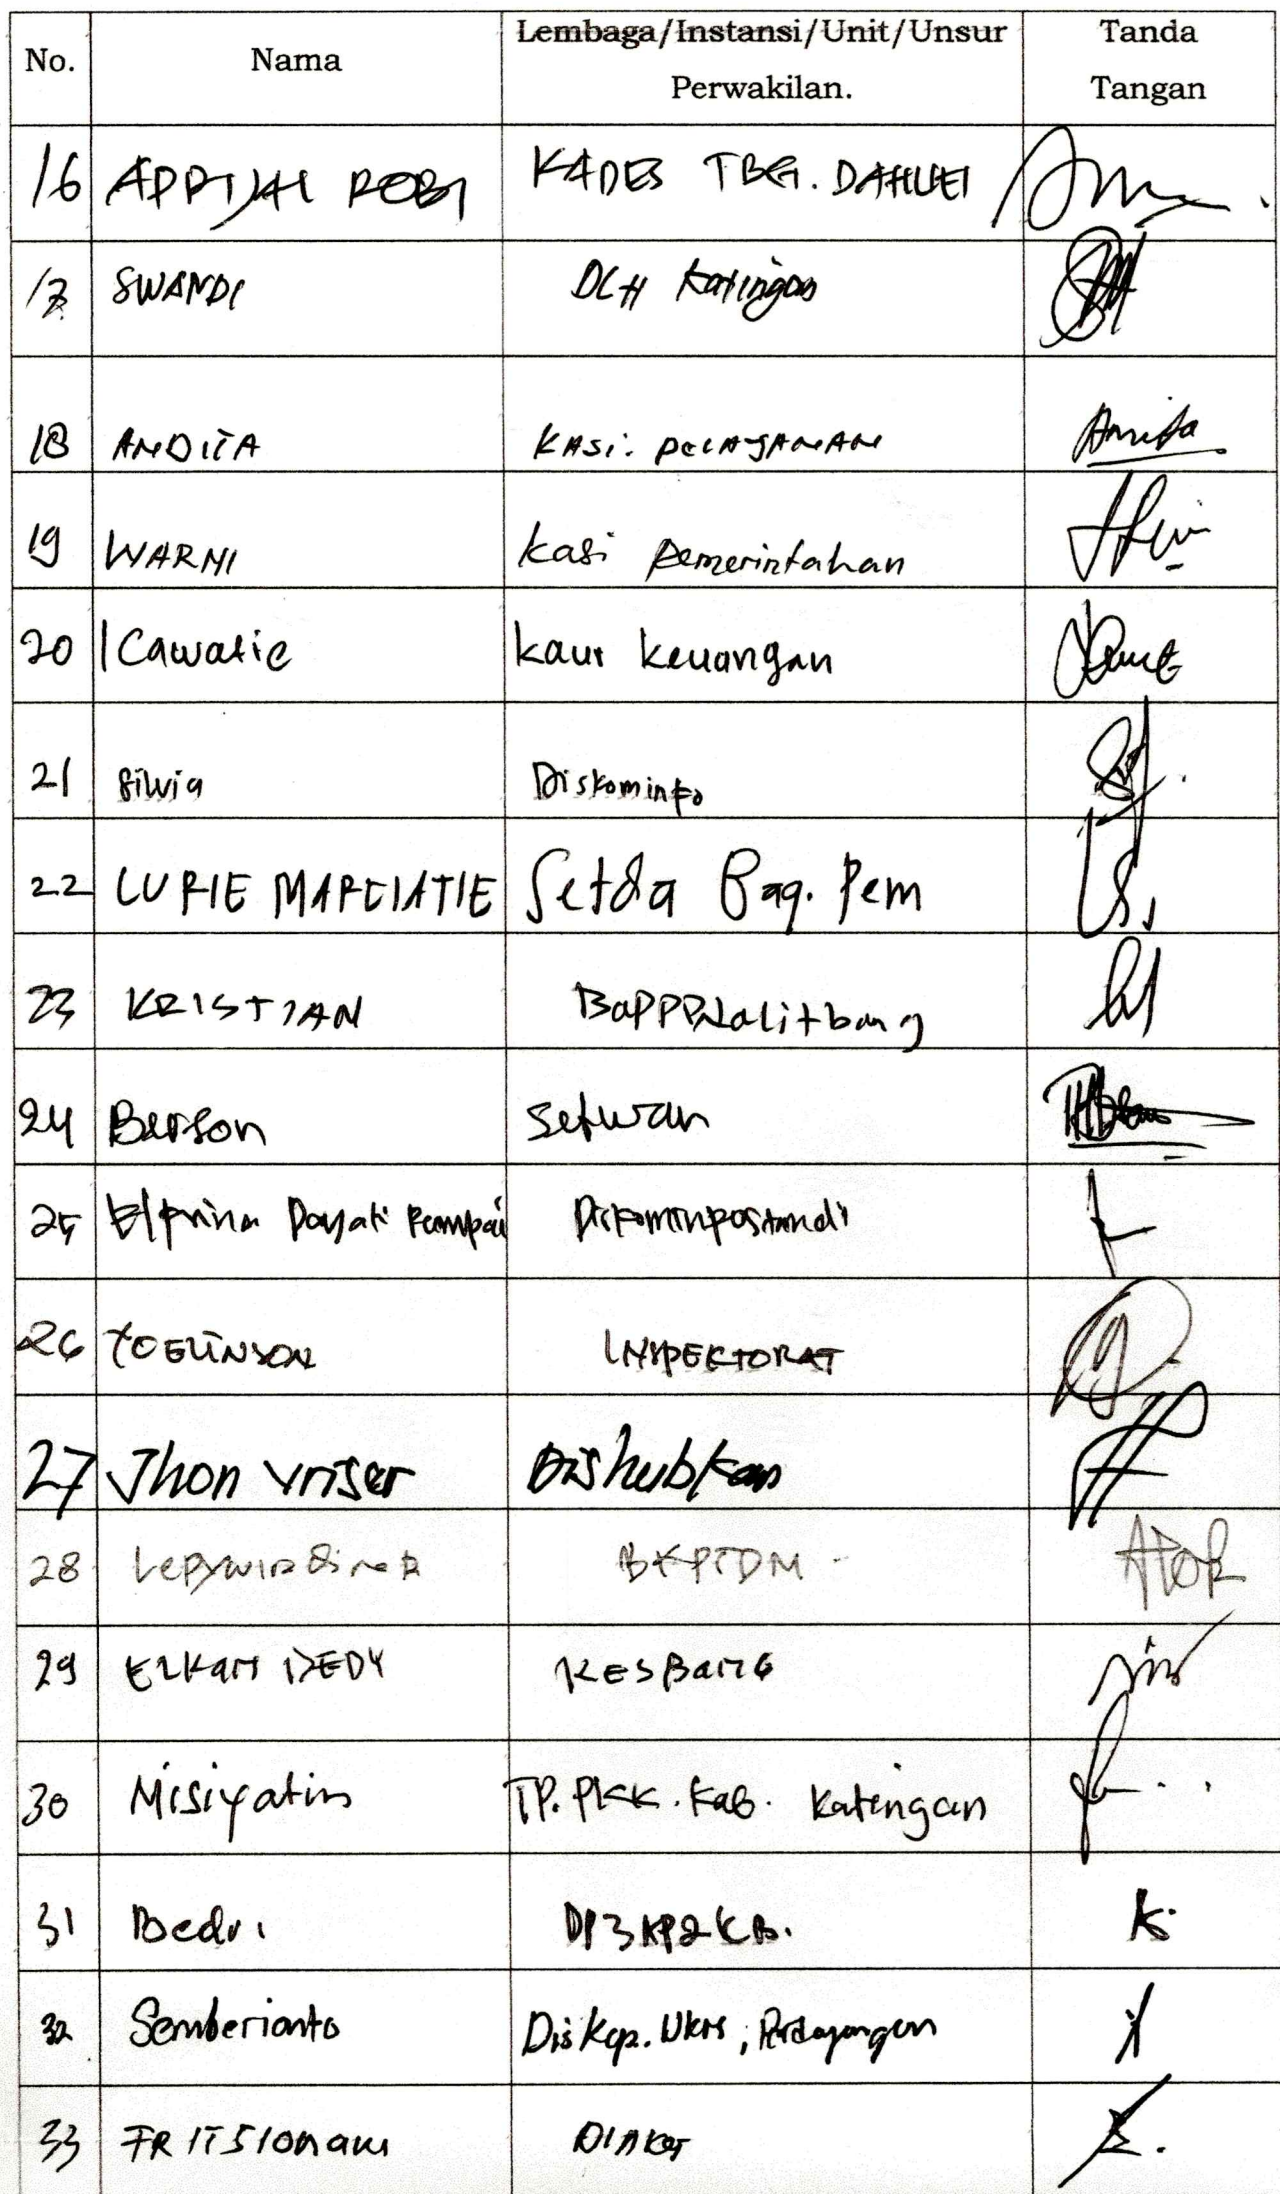 No. Nama Lembaga/Instansi/Unit/Unsur Perwakilan. Tanda Tangan
16 APRIJAL ROBI KADES TBG. DAHUEI
17 SWANDI DLH Katingan
18 ANDITA KASi. PELAYANAN Anita
19 WARNI kasi pemerintahan
20 ICawatie kaur keuangan
21 Silvia Diskominfo
22 LURIE MARCIATIE Setda Bag. Pem
23 KRISTIAN Bapppdalitbang
24 Berson Setwan
25 Elprina Dayati Rampai Diskominpostandi
26 YOELINSON INSPEKTORAT
27 Jhon vriser Dishubkan
28 BKPSDM
29 ELKAN DEDY KESBANG
30 Misiyatin TP. PKK. Kab. Katingan
31 Bedri DP3AP2KB.
32 Semberianto DisKop. UKM, Perdagangan
33 FRITSIONAWI